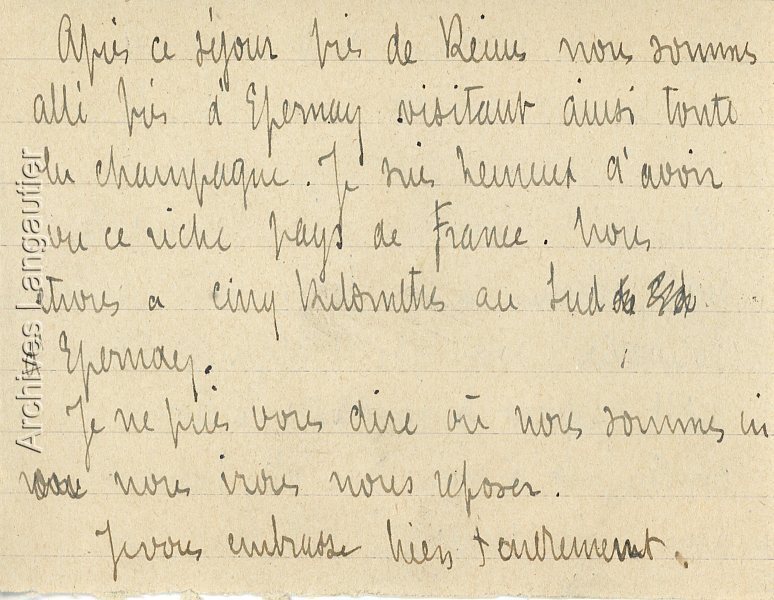 Après ce séjour près de Reims nous sommes
allé près d'Epernay visitant ainsi toute
la champagne. Je suis heureux d'avoir
vu ce riche pays de France. Nous
étions a cinq kilomètres au Sud de
Epernay.
Je ne puis vous dire où nous sommes ni
nous irons nous reposer.
Je vous embrasse bien tendrement.
Archives Langautier